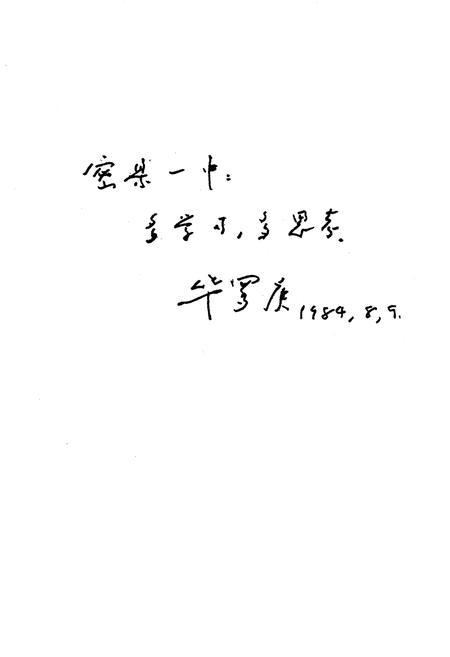 密云一中：
多学习，多思索.
华罗庚 1984, 8, 9.